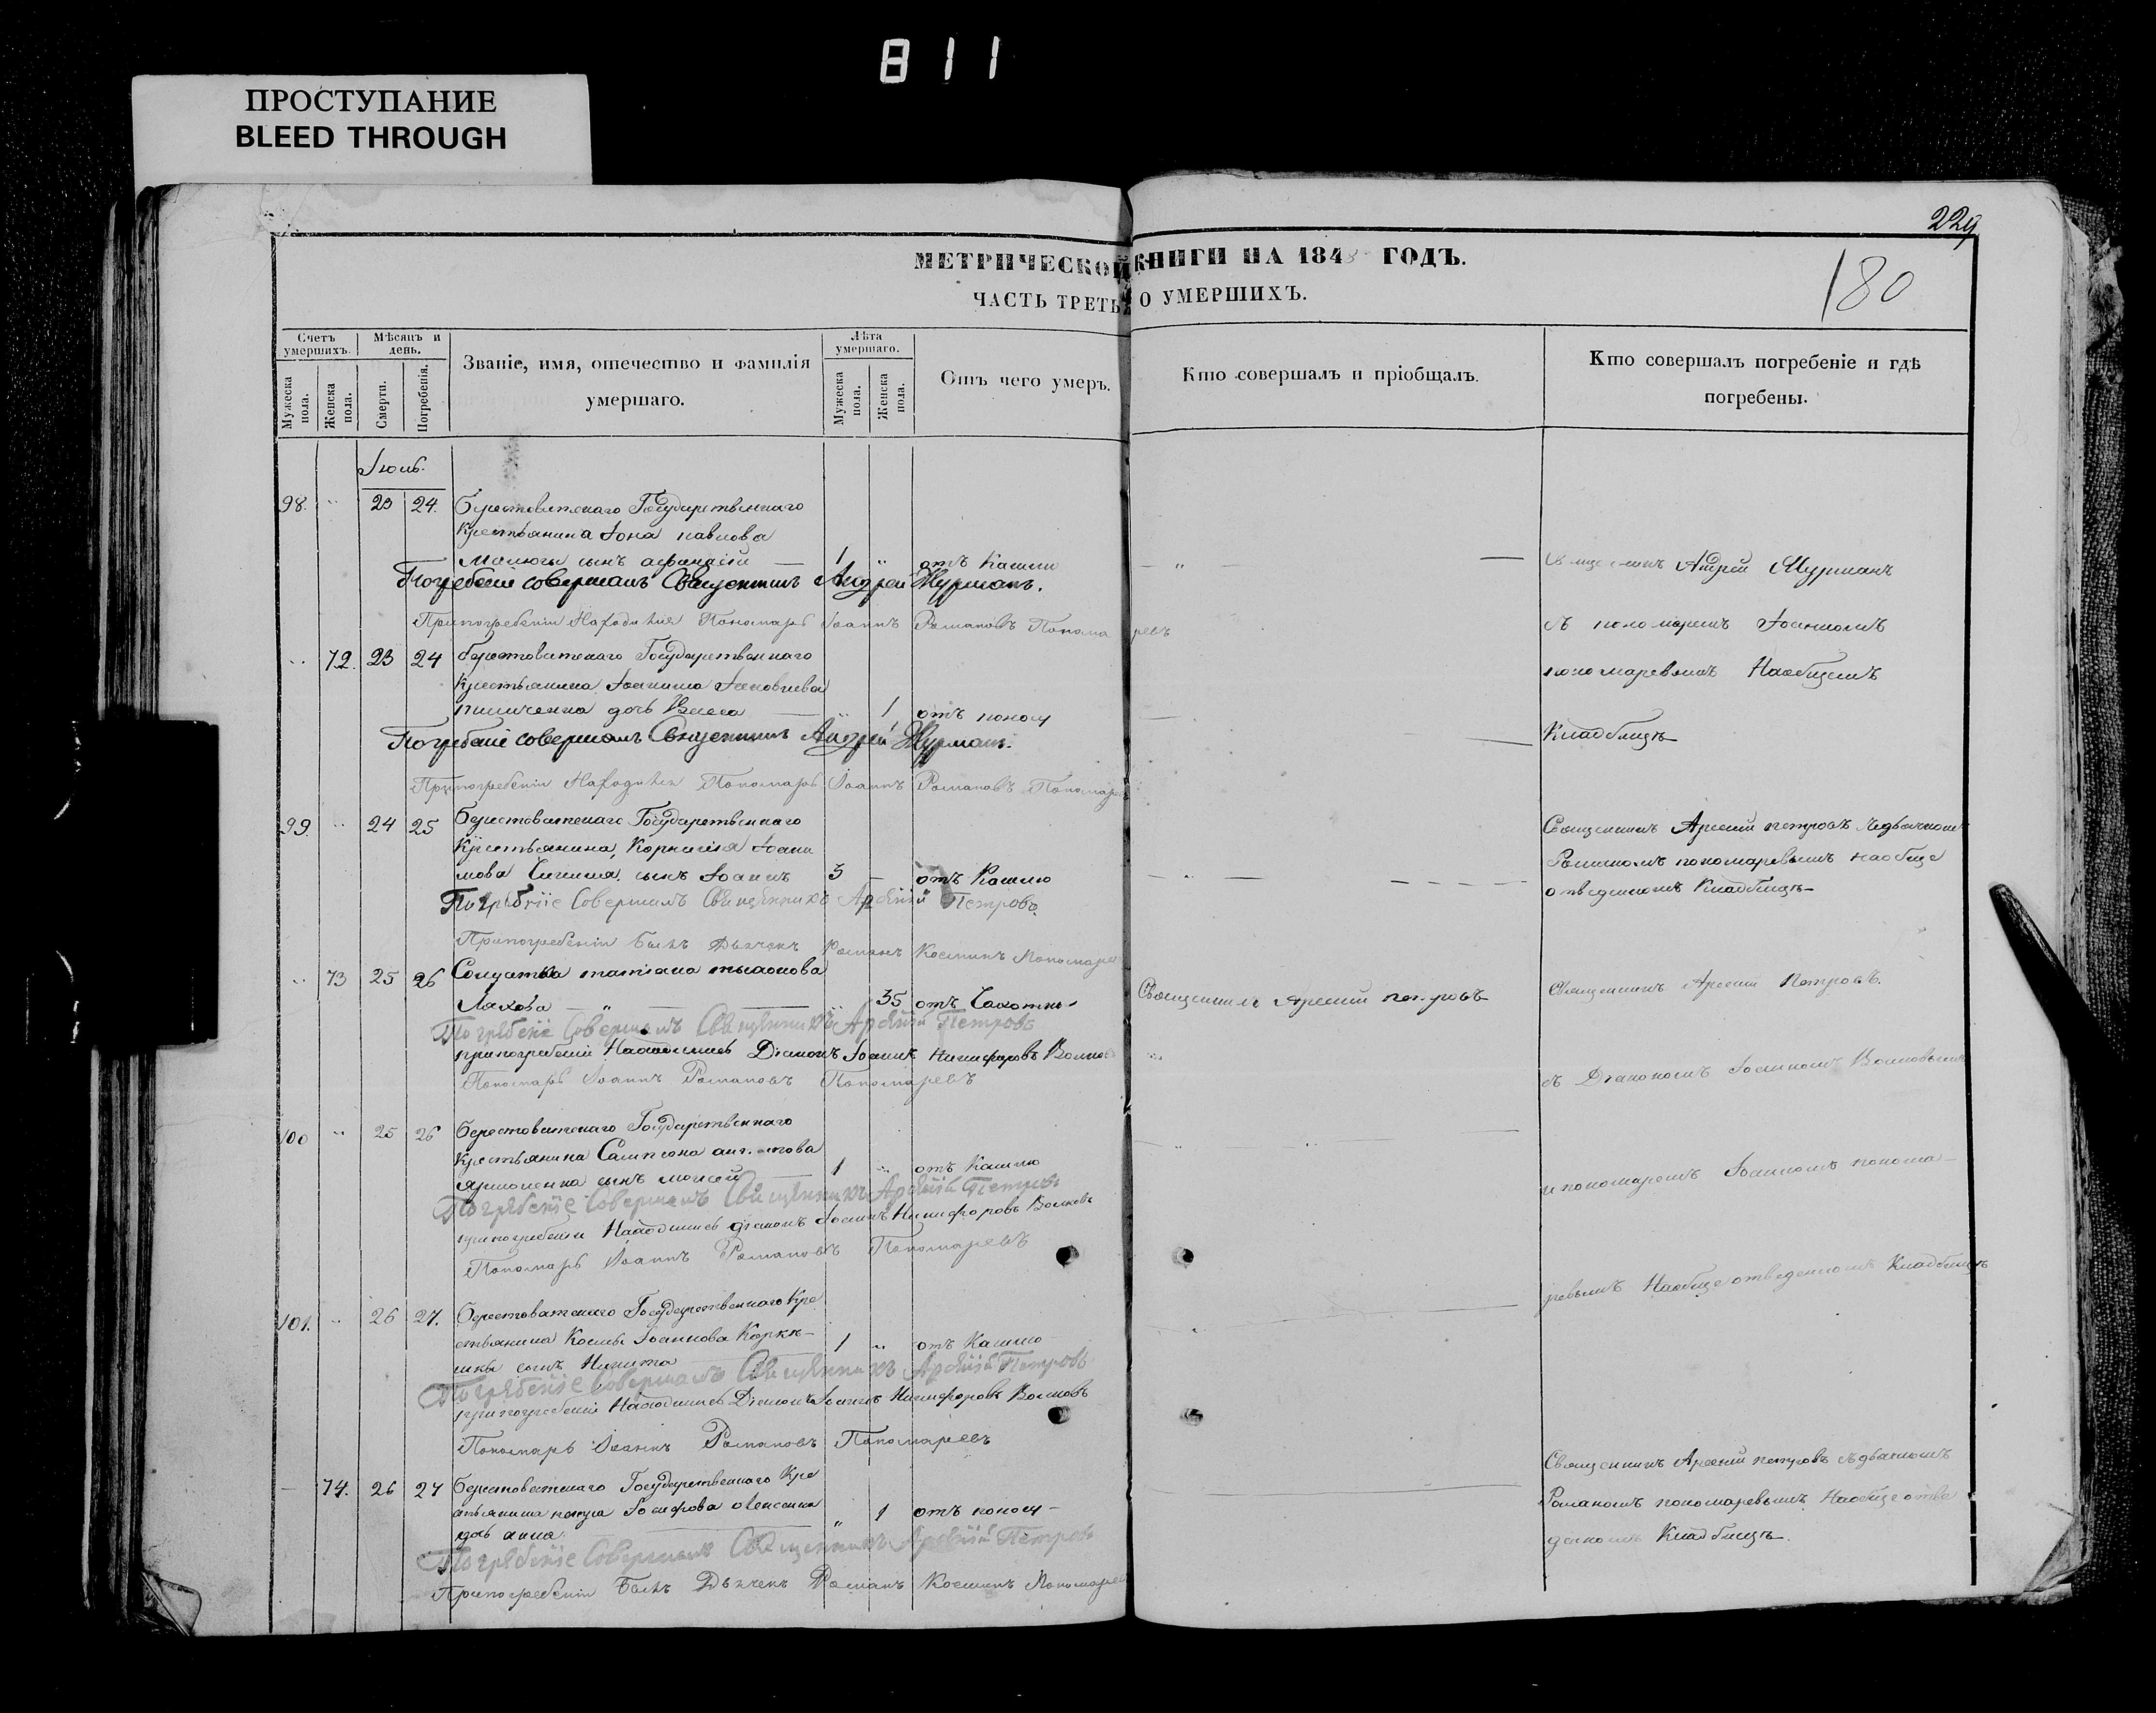 811
ПРОСТУПАНИЕ
BLEED THROUGH
229
180
МЕТРИЧЕСКОЙ КНИГИ НА 1843 ГОДЪ.
ЧАСТЬ ТРЕТЬЯ О УМЕРШИХЪ.
Счетъ умершихъ.
Мужеска пола.
Женска пола.
Мѣсяцъ и день.
Смерти.
Погребенія.
Званіе, имя, отечество и фамилія
умершаго.
Лѣта умершаго.
Мужеска пола.
Женска пола.
Отъ чего умеръ.
Кто совершалъ и пріобщалъ.
Кто совершалъ погребеніе и гдѣ
погребены.
Іюль.
98. " 23 24. Берестоватскаго Государственнаго
Крестьянина Іона павлова
сынъ афанасій — 1 " отъ Кашлю
— " — Андрей Мурманъ
Погребеніе совершалъ Священникъ Андрей Журманъ.
При погребеніи Находился Пономарь Іоаннъ Романовъ Пономаревъ
съ пономаремъ Іоанномъ
" 72. 23 24 берестоватскаго Государственнаго
пономаревымъ Наобщемъ
Крестьянина
дочь — " 1 отъ поносу
Кладбищѣ
Погребеніе совершалъ Священникъ Андрей Журманъ.
При погребеніи Находился Пономарь Іоаннъ Романовъ Пономаревъ
99 " 24 25 Берестоватскаго Государственнаго
Священникъ Арсеній петровъ
Крестьянина, Корнилія Іоанн
Романомъ пономаревымъ наобще
нова сынъ Іоаннъ 3 — отъ Кашлю
отведенномъ Кладбищѣ
Погребеніе Совершалъ Священникъ Арсеній Петровъ
При погребеніи былъ Дьячекъ Романъ Косминъ Пономарев
" 73 25 26 Солдатка татіана
Ляхова — " — " 35 отъ Сухотки
Священникъ Арсеній петровъ
Священникъ Арсеній Петровъ.
Погребеніе Совершалъ Священникъ Арсеній Петровъ
при погребеніи Находились Діаконъ Іоаннъ Никифоровъ Волковъ
Пономарь Іоаннъ Романовъ Пономаревъ
съ Діакономъ Іоанномъ Волковымъ
100 " 25 26 берестоватскаго Государственнаго
Крестьянина Сампсона
ярмоленка сынъ моисей 1 " отъ Кашлю
и пономаремъ Іоанномъ понома-
Погребеніе Совершалъ Священникъ Арсеній Петровъ
при погребеніи Находились діаконъ Іоаннъ Никифоровъ Волковъ
Пономарь Іоаннъ Романовъ Пономаревъ
ревымъ Наобще отведенномъ Кладбищѣ
101. " 26 27. берестоватскаго Государственнаго Кре
стьянина Космы Іоаннова
сынъ Никита 1 " отъ Кашлю
Погребеніе Совершалъ Священникъ Арсеній Петровъ
при погребеніи Находились Діаконъ Іоаннъ Никифоровъ Волковъ
Пономарь Іоаннъ Романовъ Пономаревъ
— 74. 26 27 берестоватскаго Государственнаго Кре
Священникъ Арсеній петровъ
стьянина петра Іосифова
Романомъ пономаревымъ Наобще отве
дочь анна. " 1 отъ поносу
денномъ Кладбищѣ.
Погребеніе Совершалъ Священникъ Арсеній Петровъ
При погребеніи былъ Дьячекъ Романъ Косминъ Пономарев